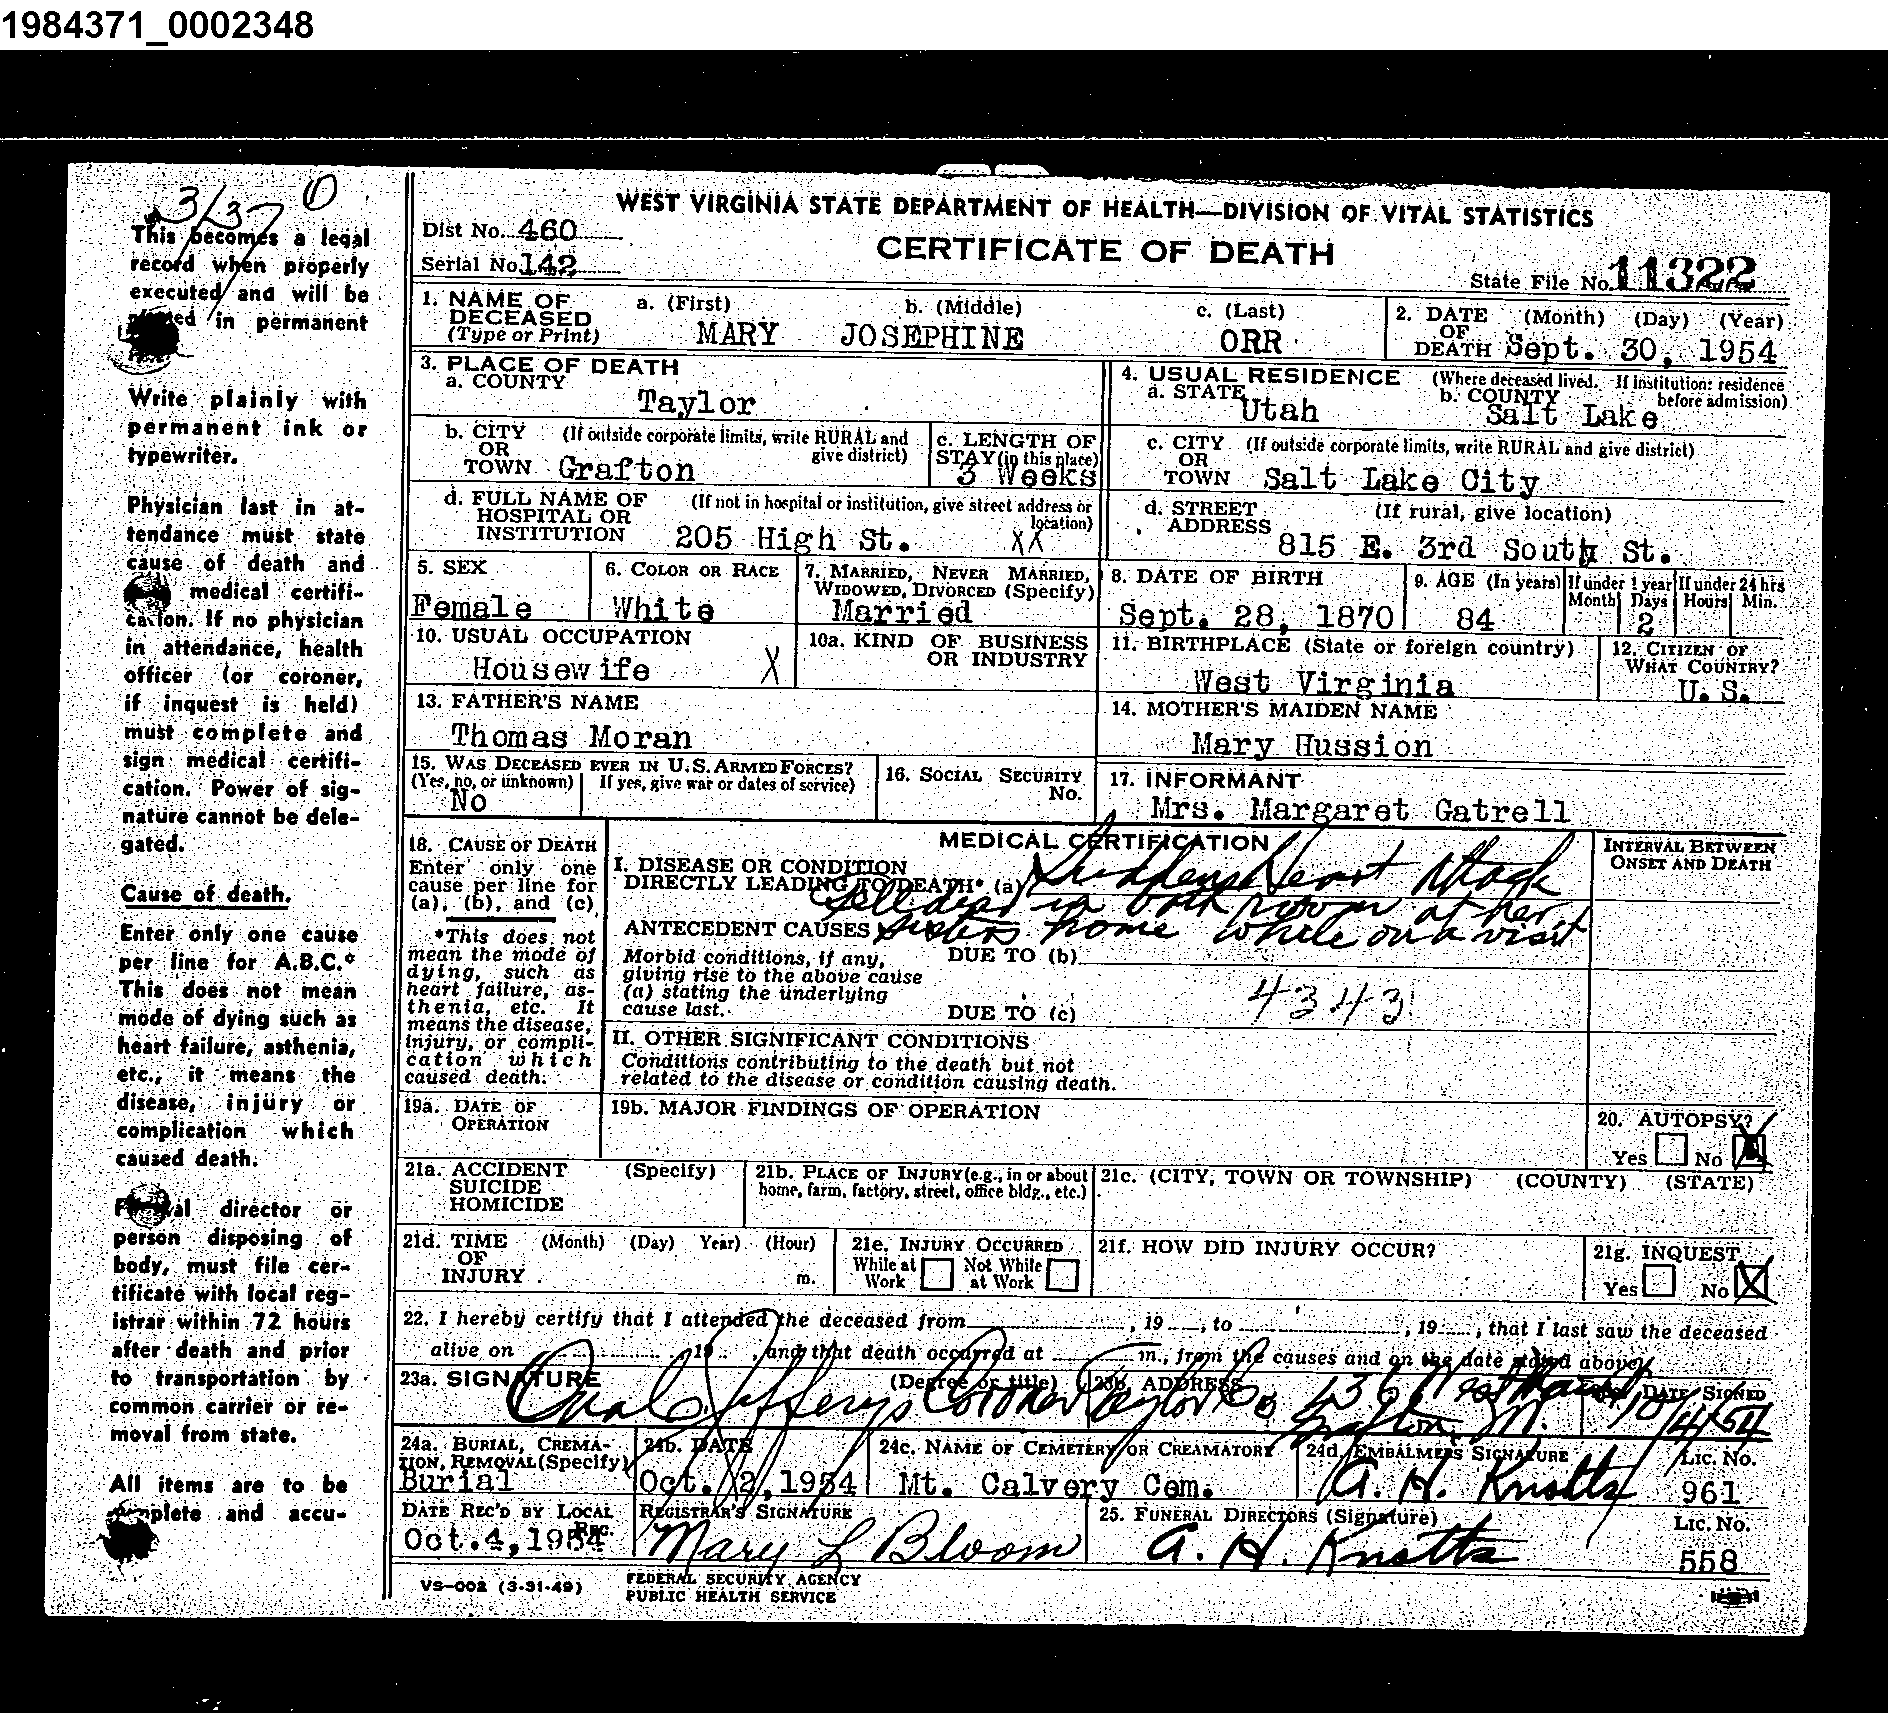 1984371_0002348
3/37 0
This becomes a legal
record when properly
executed and will be
in permanent
Write plainly with
permanent ink or
typewriter.
Physician last in at-
tendance must state
cause of death and
medical certifi-
cation. If no physician
in attendance, health
officer (or coroner,
if inquest is held)
must complete and
sign medical certifi-
cation. Power of sig-
nature cannot be dele-
gated.
Cause of death.
Enter only one cause
per line for A.B.C.*
This does not mean
mode of dying such as
heart failure, asthenia,
etc., it means the
disease, injury or
complication which
caused death.
director or
person disposing of
body, must file cer-
tificate with local reg-
istrar within 72 hours
after death and prior
to transportation by
common carrier or re-
moval from state.
All items are to be
and accu-
WEST VIRGINIA STATE DEPARTMENT OF HEALTH—DIVISION OF VITAL STATISTICS
Dist No. 460
CERTIFICATE OF DEATH
Serial No 142
State File No. 11322
1. NAME OF DECEASED (Type or Print) a. (First) b. (Middle) c. (Last)
MARY JOSEPHINE ORR
2. DATE OF DEATH (Month) (Day) (Year)
Sept. 30, 1954
3. PLACE OF DEATH
a. COUNTY
Taylor
4. USUAL RESIDENCE (Where deceased lived. If institution: residence before admission)
a. STATE Utah b. COUNTY Salt Lake
b. CITY OR TOWN (If outside corporate limits, write RURAL and give district)
Grafton
c. LENGTH OF STAY (in this place)
3 Weeks
c. CITY OR TOWN (If outside corporate limits, write RURAL and give district)
Salt Lake City
d. FULL NAME OF HOSPITAL OR INSTITUTION (If not in hospital or institution, give street address or location)
205 High St. XX
d. STREET ADDRESS (If rural, give location)
815 E. 3rd South St.
5. SEX
Female
6. COLOR OR RACE
White
7. MARRIED, NEVER MARRIED, WIDOWED, DIVORCED (Specify)
Married
8. DATE OF BIRTH
Sept. 28, 1870
9. AGE (In years)
84
If under 1 year If under 24 hrs
Month Days Hours Min.
2
10. USUAL OCCUPATION
Housewife X
10a. KIND OF BUSINESS OR INDUSTRY
11. BIRTHPLACE (State or foreign country)
West Virginia
12. CITIZEN OF WHAT COUNTRY?
U. S.
13. FATHER'S NAME
Thomas Moran
14. MOTHER'S MAIDEN NAME
Mary Hussion
15. WAS DECEASED EVER IN U.S. ARMED FORCES?
(Yes, no, or unknown) If yes, give war or dates of service)
No
16. SOCIAL SECURITY No.
17. INFORMANT
Mrs. Margaret Gatrell
18. CAUSE OF DEATH
Enter only one
cause per line for
(a), (b), and (c)
*This does not
mean the mode of
dying, such as
heart failure, as-
thenia, etc. It
means the disease,
injury, or compli-
cation which
caused death.
MEDICAL CERTIFICATION
I. DISEASE OR CONDITION
DIRECTLY LEADING TO DEATH* (a) Sudden Heart Attack
Fell dead in bath room at her
ANTECEDENT CAUSES sisters home while on a visit
Morbid conditions, if any,
giving rise to the above cause
(a) stating the underlying
cause last.
DUE TO (b)
4343
DUE TO (c)
INTERVAL BETWEEN ONSET AND DEATH
II. OTHER SIGNIFICANT CONDITIONS
Conditions contributing to the death but not
related to the disease or condition causing death.
19a. DATE OF OPERATION
19b. MAJOR FINDINGS OF OPERATION
20. AUTOPSY?
Yes No X
21a. ACCIDENT SUICIDE HOMICIDE (Specify)
21b. PLACE OF INJURY (e.g., in or about home, farm, factory, street, office bldg., etc.)
21c. (CITY, TOWN OR TOWNSHIP) (COUNTY) (STATE)
21d. TIME OF INJURY (Month) (Day) Year) (Hour) m.
21e. INJURY OCCURRED
While at Work Not While at Work
21f. HOW DID INJURY OCCUR?
21g. INQUEST
Yes No X
22. I hereby certify that I attended the deceased from , 19 , to , 19 , that I last saw the deceased
alive on 19 , and that death occurred at m., from the causes and on the date stated above.
23a. SIGNATURE (Degree or title)
Opal Jefferys Coroner Taylor Co
23b. ADDRESS
Grafton
DATE SIGNED
10/4/54
24a. BURIAL, CREMATION, REMOVAL (Specify)
Burial
24b. DATE
Oct. 2, 1954
24c. NAME OF CEMETERY OR CREAMATORY
Mt. Calvery Cem.
24d. EMBALMERS SIGNATURE
A. H. Knotts
LIC. NO.
961
DATE REC'D BY LOCAL REG.
Oct. 4, 1954
REGISTRAR'S SIGNATURE
Mary L Bloom
25. FUNERAL DIRECTORS (Signature)
A. H. Knotts
LIC. NO.
558
VS-002 (3-31-49)
FEDERAL SECURITY AGENCY
PUBLIC HEALTH SERVICE